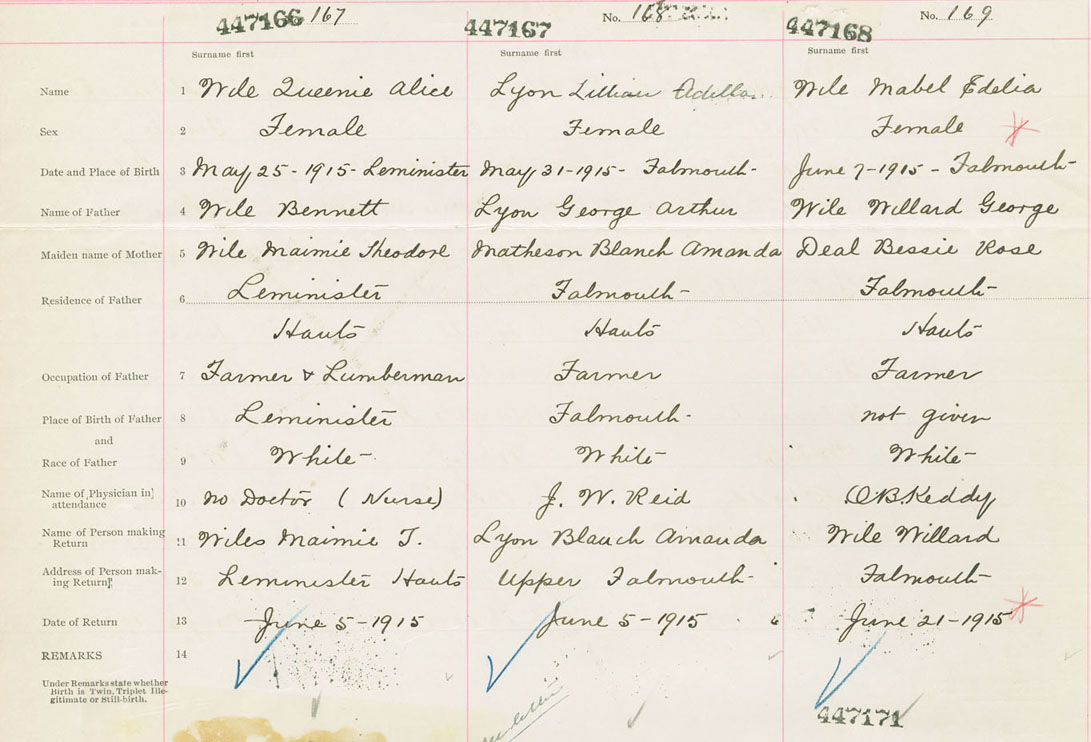 447166 167 447167 No. 168 447168 No. 169
Surname first Surname first Surname first
Name 1 Wile Queenie Alice Lyon Lillian Wile Mabel Edelia
Sex 2 Female Female Female
Date and Place of Birth 3 May 25-1915- Leminister May 31-1915- Falmouth- June 7-1915- Falmouth-
Name of Father 4 Wile Bennett Lyon George Arthur Wile Willard George
Maiden name of Mother 5 Wile Maimie Theodore Matheson Blanch Amanda Deal Bessie Rose
Residence of Father 6 Leminister Falmouth- Falmouth-
Hants Hants Hants
Occupation of Father 7 Farmer & Lumberman Farmer Farmer
Place of Birth of Father 8 Leminister Falmouth- not given
and
Race of Father 9 White- White White-
Name of Physician in
attendance 10 no Doctor (Nurse) J. W. Reid O.B. Keddy
Name of Person making
Return 11 Wiles Maimie T. Lyon Blanch Amanda Wile Willard
Address of Person mak-
ing Return 12 Leminister Hants Upper Falmouth- Falmouth-
Date of Return 13 June 5-1915 June 5-1915 June 21-1915
REMARKS 14
Under Remarks state whether
Birth is Twin, Triplet Ille-
gitimate or Still-birth.
447171